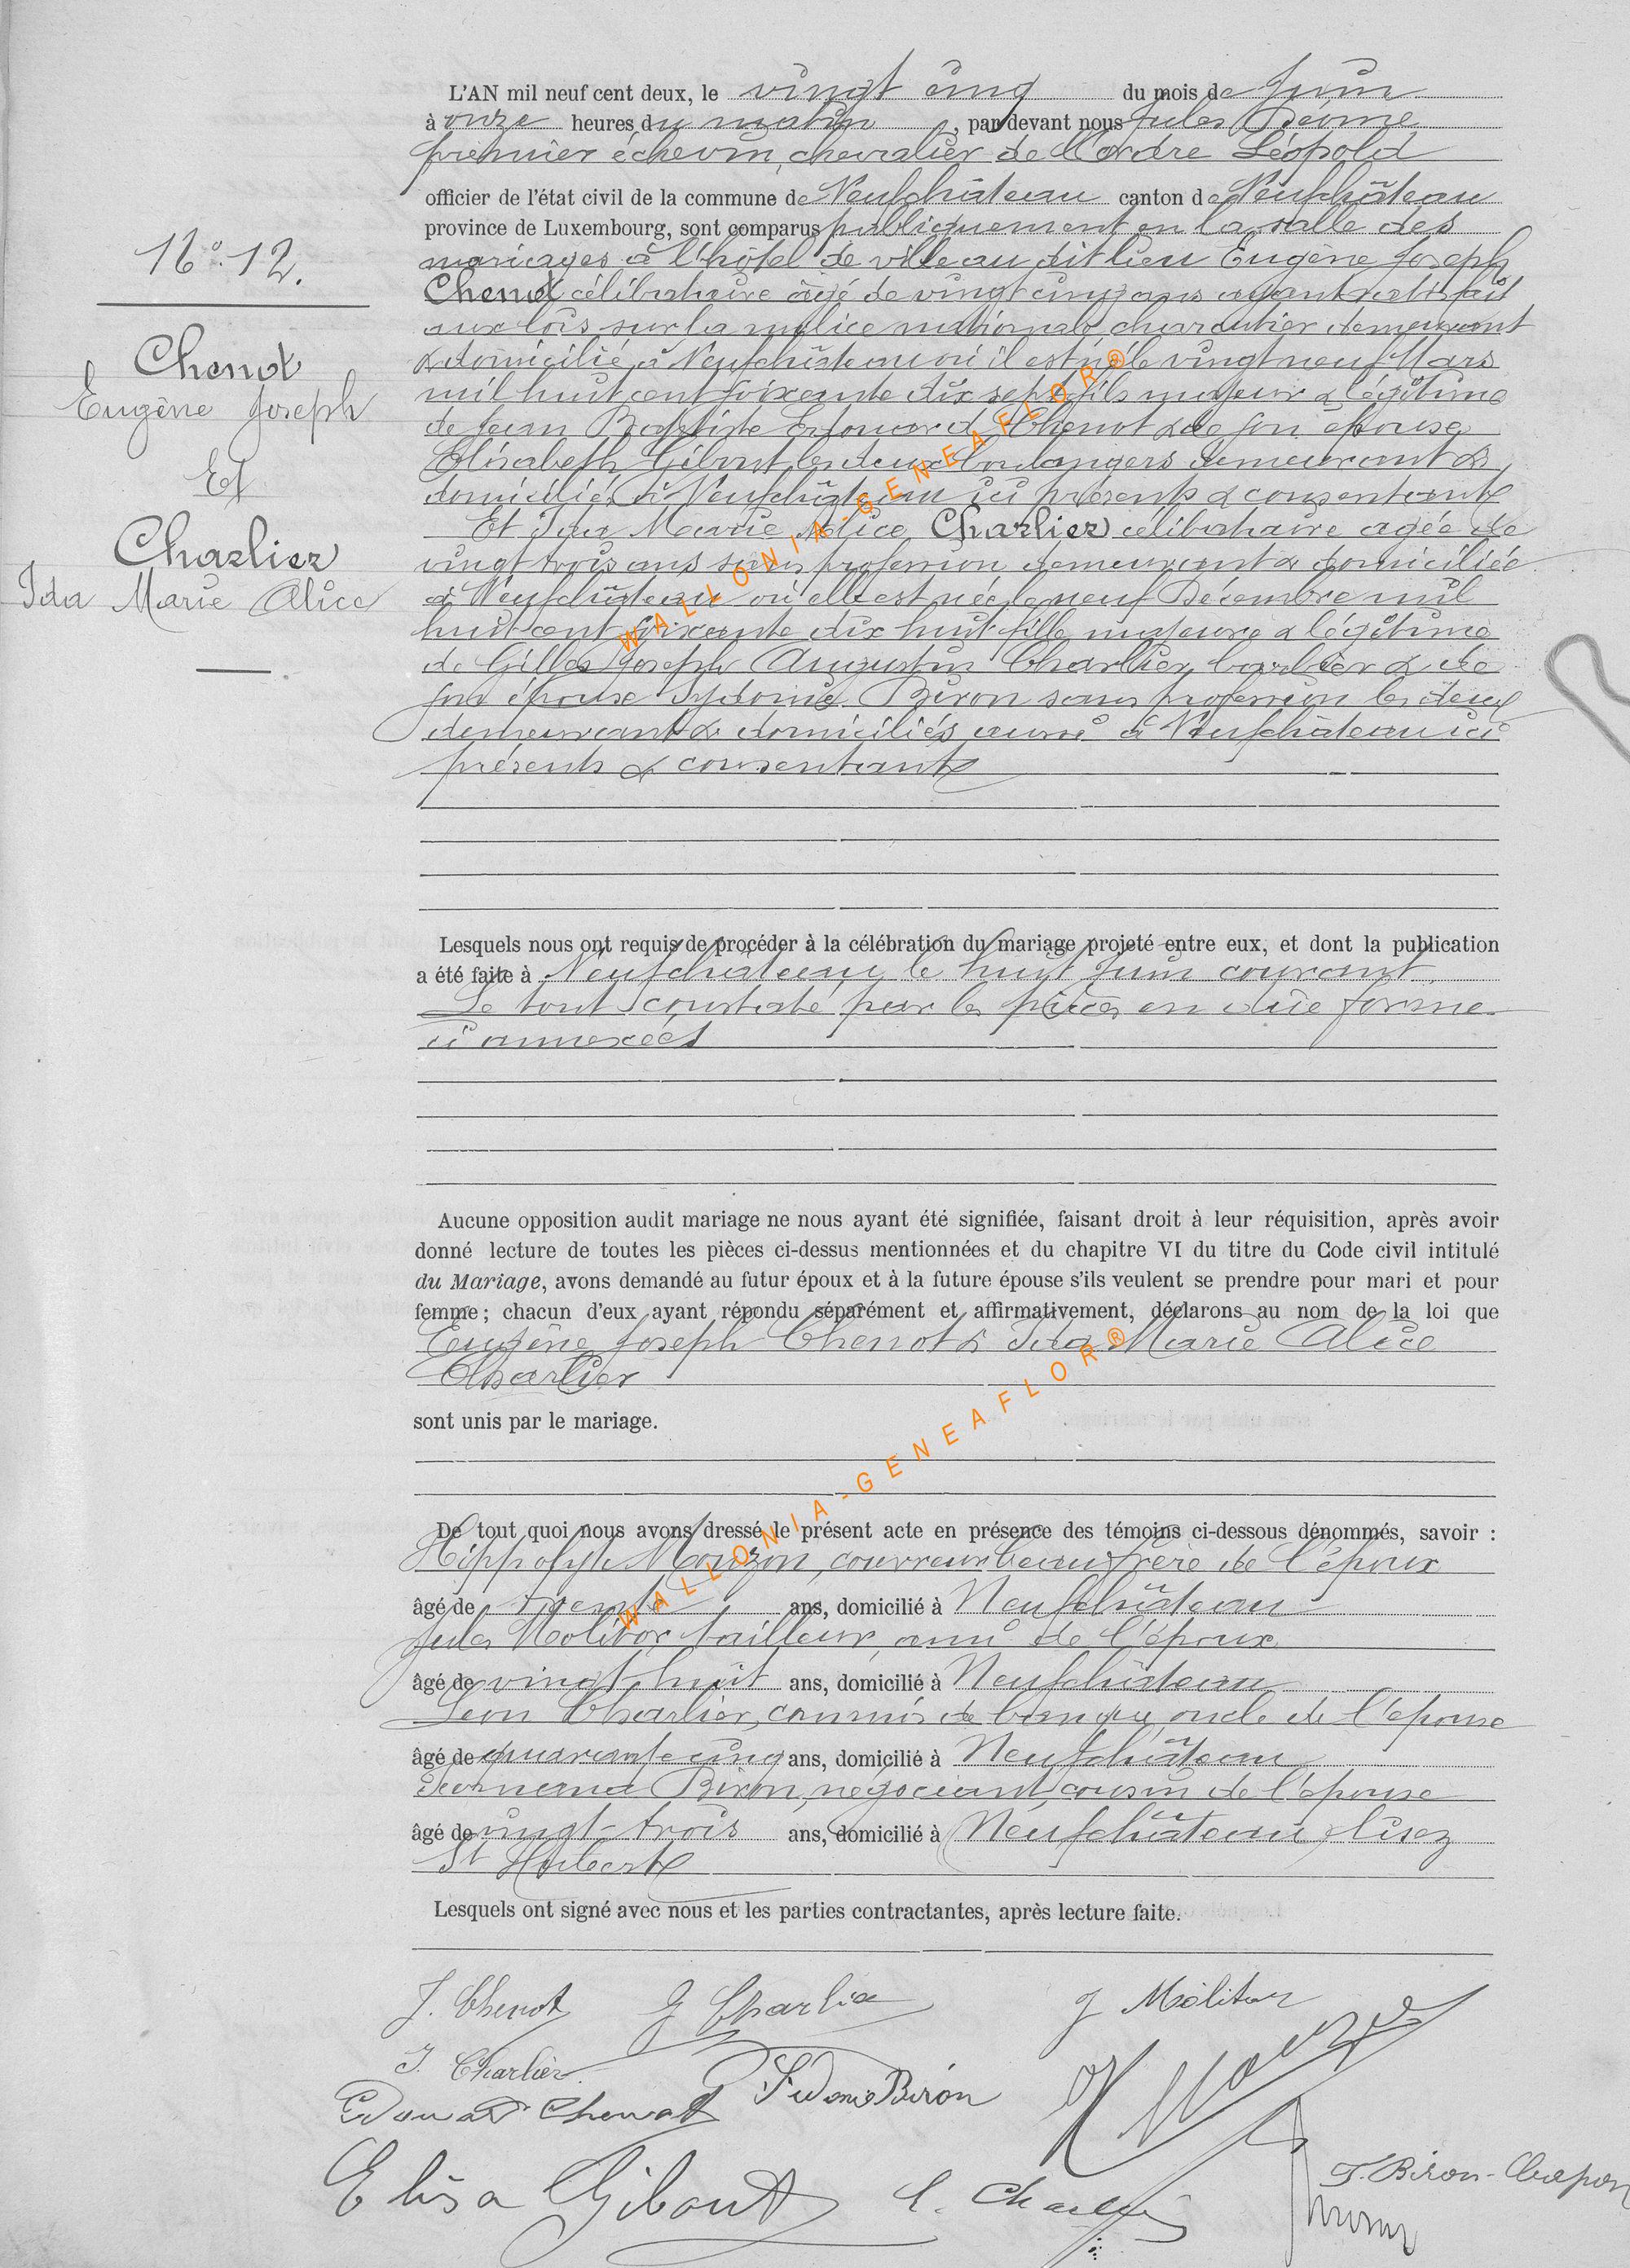 L'AN mil neuf cent deux, le vingt cinq du mois de Juin
à onze heures du matin, par devant nous Jules
premier échevin, chevalier de l'ordre Léopold
officier de l'état civil de la commune de Neufchâteau canton de Neufchâteau
province de Luxembourg, sont comparus publiquement en la salle des
mariages à l'hôtel de ville au dit lieu Eugène Joseph
Chenot célibataire âgé de vingt cinq ans ayant satisfait
aux lois sur la milice nationale charcutier demeurant
& domicilié à Neufchâteau où il est né le vingt neuf Mars
mil huit cent soixante dix sept fils majeur & légitime
de Jean Baptiste Edouard Chenot & de son épouse
Elisabeth Gibout les deux boulangers demeurant &
domiciliés à Neufchâteau ici présents & consentants
Et Ida Marie Alice Charlier célibataire agée de
vingt trois ans sans profession demeurant & domiciliée
à Neufchâteau où elle est née le neuf Décembre mil
huit cent soixante dix huit fille majeure & légitime
de Gilles Joseph Augustin Charlier, barbier & de
son épouse Sydonie Biron sans profession les deux
demeurant & domiciliés aussi à Neufchâteau ici
présents & consentants
N° 12.
Chenot
Eugène Joseph
Et
Charlier
Ida Marie Alice
Lesquels nous ont requis de procéder à la célébration du mariage projeté entre eux, et dont la publication
a été faite à Neufchâteau le huit Juin courant
Le tout constaté par les pièces en due forme
ci annexées
Aucune opposition audit mariage ne nous ayant été signifiée, faisant droit à leur réquisition, après avoir
donné lecture de toutes les pièces ci-dessus mentionnées et du chapitre VI du titre du Code civil intitulé
du Mariage, avons demandé au futur époux et à la future épouse s'ils veulent se prendre pour mari et pour
femme ; chacun d'eux ayant répondu séparément et affirmativement, déclarons au nom de la loi que
Eugène Joseph Chenot & Ida Marie Alice
Charlier
sont unis par le mariage.
De tout quoi nous avons dressé le présent acte en présence des témoins ci-dessous dénommés, savoir :
Hippolyte Mouzon, couvreur beau frère de l'époux
âgé de trente ans, domicilié à Neufchâteau
Jules Molitor tailleur, ami de l'époux
âgé de vingt-huit ans, domicilié à Neufchâteau
Léon Charlier, commis de banque, oncle de l'épouse
âgé de quarante cinq ans, domicilié à Neufchâteau
Fernand Biron, négociant, cousin de l'épouse
âgé de vingt-trois ans, domicilié à Neufchâteau lisez
St Hubert
Lesquels ont signé avec nous et les parties contractantes, après lecture faite.
J. Chenot G Charlier J Molitor
I. Charlier.
Edouard Chenot Sidonie Biron
Elisa Gibout L. Charlier F. Biron-Chapon
WALLONIA-GENEAFLOR®
WALLONIA-GENEAFLOR®